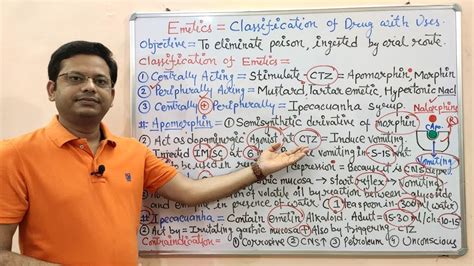 Emetics = Classification of Drug with Uses.
Objective = To eliminate poison, ingested by oral route.
Classification of Emetics =
① Centrally Acting = Stimulate CTZ = Apomorphin, Morphin
② Peripherally Acting = Mustard, Tartar emetic, Hypertonic Nacl
③ Centrally + Peripherally = Ipecacuanha syrup. Nalorphin
# Apomorphin = ① Semisynthetic derivative of morphin
② Act as dopaminergic Agonist at CTZ = Induce vomiting.
IM/SC at 6 vomiting in 5-15 mnt
depression = Because it is CNS
gastric mucosa → start reflex → Vomiting
of volatile oil by reaction between
and enzyme in presence of water. ① 1 teaspoon in 300 ml water
# Ipecacuanha = Contain emetin Alkaloid. Adult = 15-30 ml/ch 10-15
Act by = Irritating gastric mucosa + Also by triggering CTZ
Contraindication = ① Corrosive ② CNST ③ Petroleum ④ Unconscious
R
Apo.
Vomiting